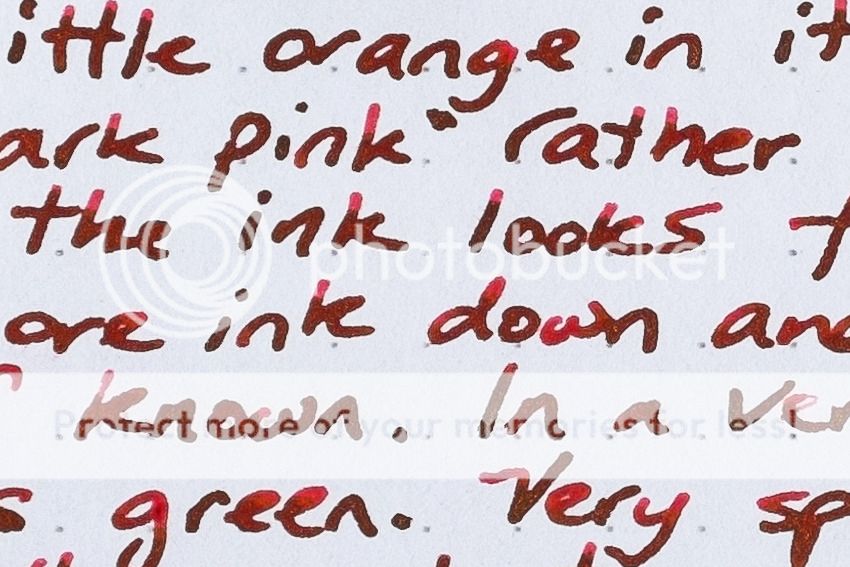 ittle orange in it
ark pink. rather
the ink looks t
ore ink down and
known. In a ver
s green. Very sp
photobucket
Protect more of your memories for less!